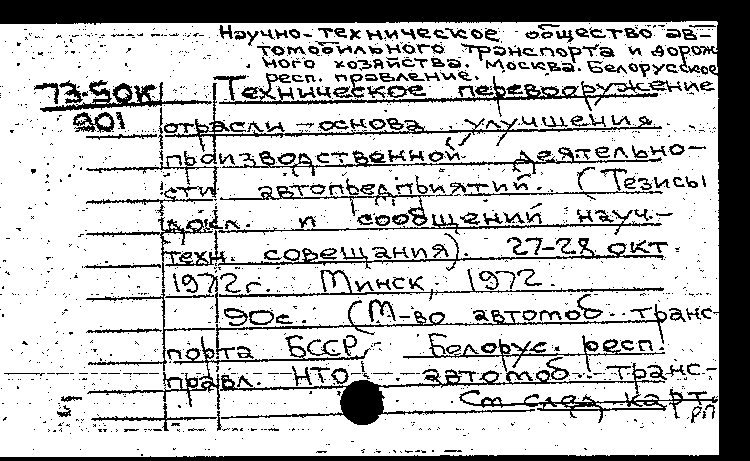 Научно-техническое общество ав-
томобильного транспорта и дорож
ного хозяйства. Москва. Белорусское
респ. правление.
73-50К Техническое перевооружение
901 отрасли - основа улучшения
производственной деятельно-
сти автопредприятий. (Тезисы
докл. и сообщений науч.-
техн. совещания). 27-28 окт.
1972г. Минск, 1972.
90с. (М-во автомоб. транс-
порта БССР. Белорус. респ.
правл. НТО автомоб. транс-
См след карт.
РП